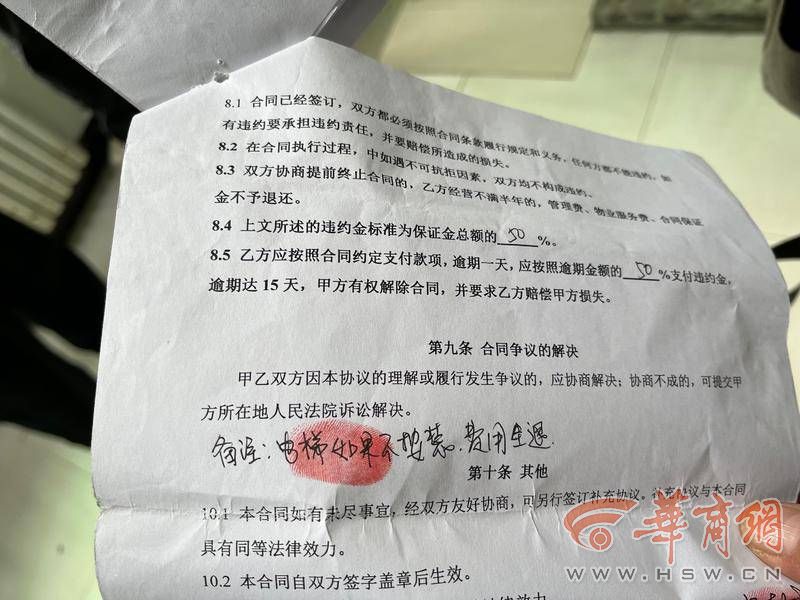 8.1 合同已经签订，双方都必须按照合同条款履行规定和义务，任何方都不能违约，如
有违约要承担违约责任，并要赔偿所造成的损失。
8.2 在合同执行过程，中如遇不可抗拒因素，双方均不构成违约。
8.3 双方协商提前终止合同的，乙方经营不满半年的，管理费、物业服务费、合同保证
金不予退还。
8.4 上文所述的违约金标准为保证金总额的 50 %。
8.5 乙方应按照合同约定支付款项，逾期一天，应按照逾期金额的 50 %支付违约金，
逾期达 15 天，甲方有权解除合同，并要求乙方赔偿甲方损失。
第九条 合同争议的解决
甲乙双方因本协议的理解或履行发生争议的，应协商解决；协商不成的，可提交甲
方所在地人民法院诉讼解决。
备注：电梯如果不安装．费用全退．
第十条 其他
10.1 本合同如有未尽事宜，经双方友好协商，可另行签订补充协议，补充协议与本合同
具有同等法律效力。
10.2 本合同自双方签字盖章后生效。
華商網
WWW.HSW.CN